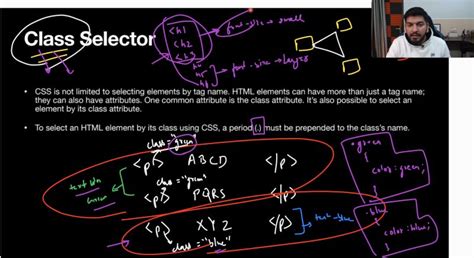 Class Selector
<h1
<h2
<h3
h4
h5
h6
font-size → small
font-size → large
• CSS is not limited to selecting elements by tag name. HTML elements can have more than just a tag name;
they can also have attributes. One common attribute is the class attribute. It's also possible to select an
element by its class attribute.
• To select an HTML element by its class using CSS, a period (.) must be prepended to the class's name.
class="green"
<p> ABCD </p>
class="green"
<p> PQRS </p>
<p> XYZ </p>
class="blue"
text
green
text-blue
.green
{
color: green;
}
.blue
{
color: blue;
}